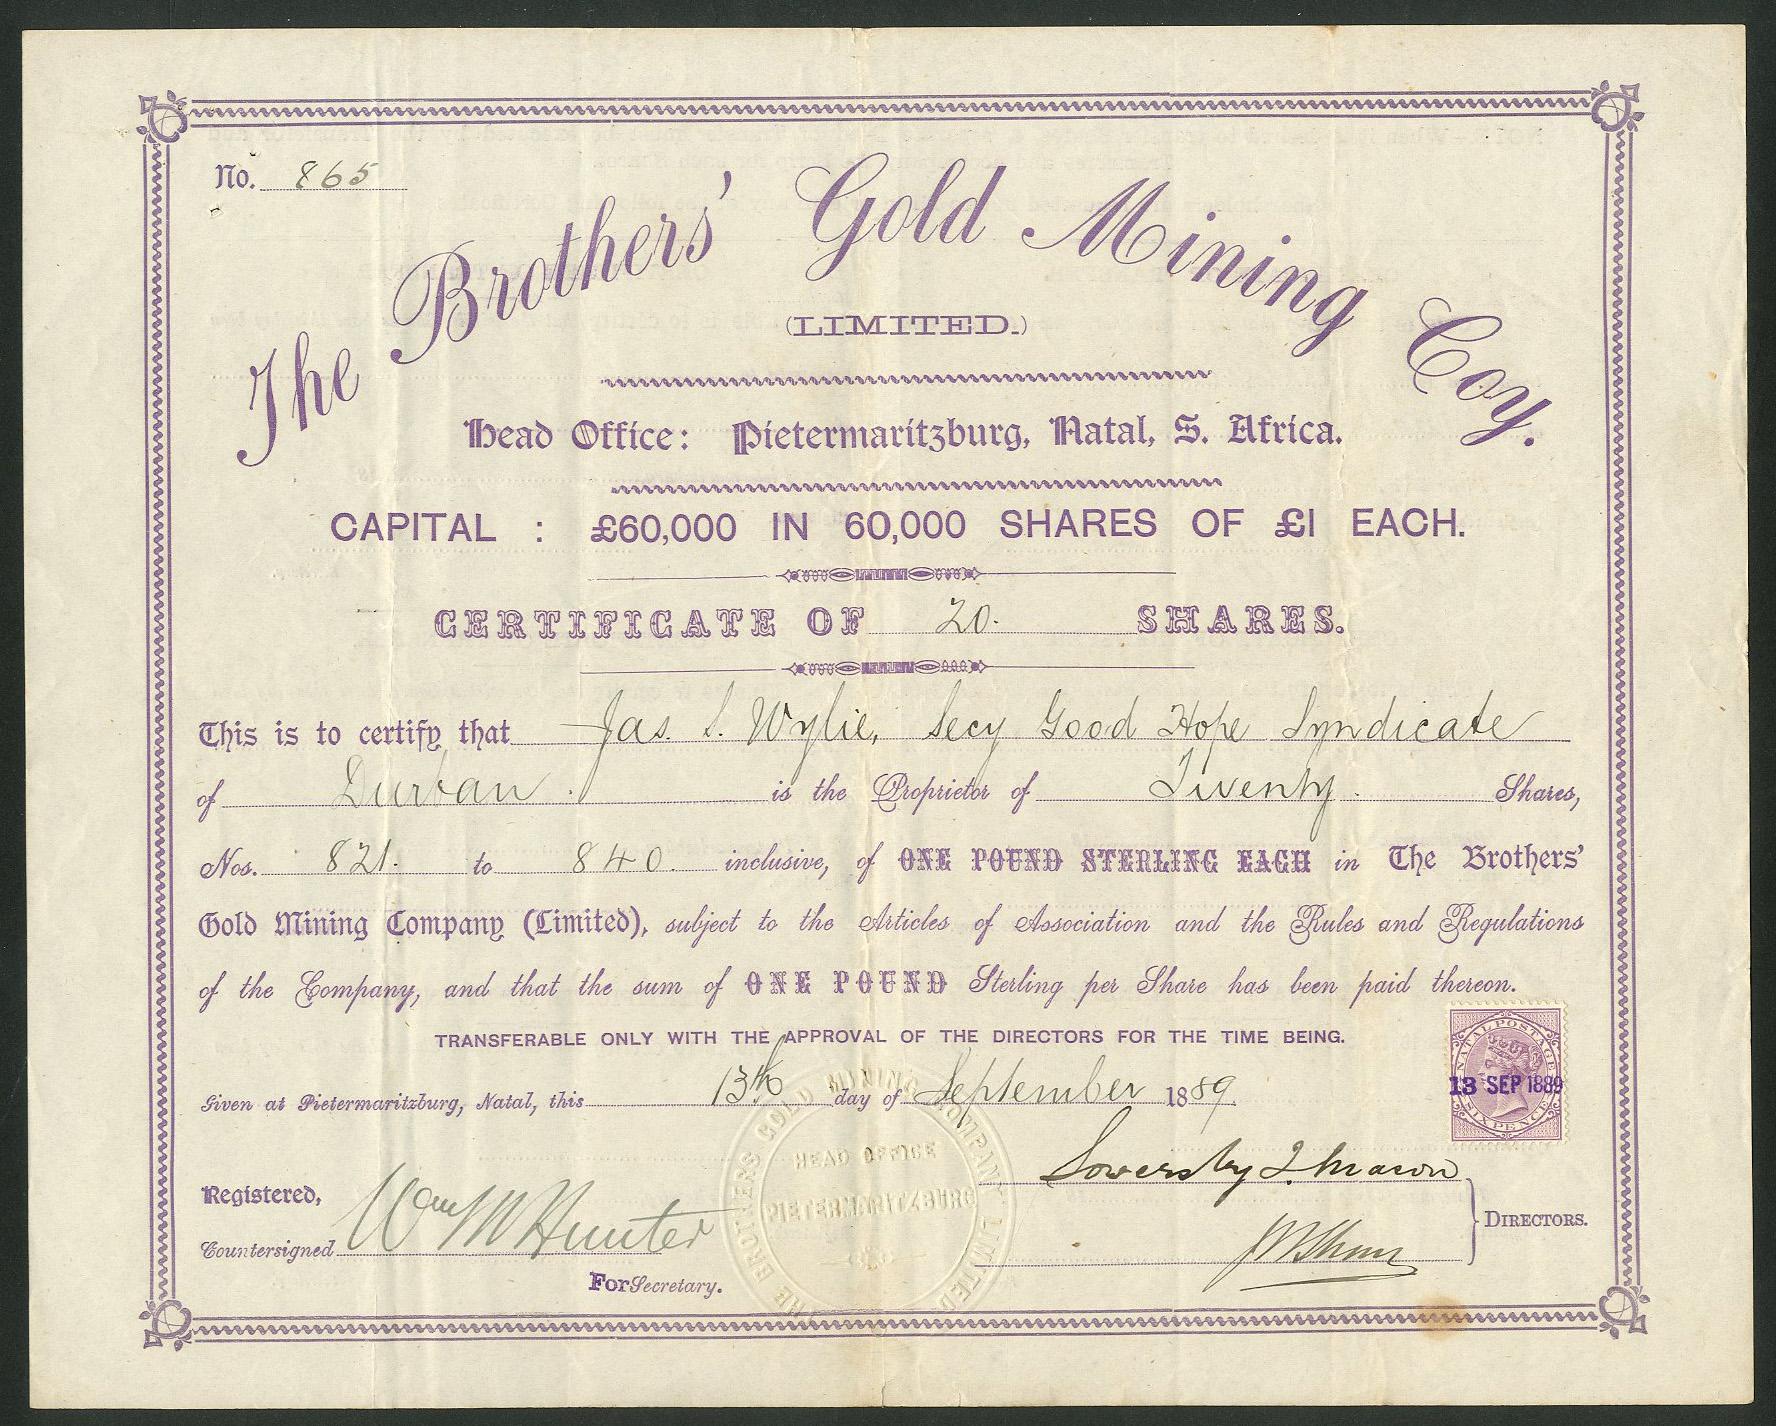 No. 865
The Brothers' Gold Mining Coy.
(LIMITED.)
Head Office: Pietermaritzburg, Natal, S. Africa.
CAPITAL : £60,000 IN 60,000 SHARES OF £1 EACH.
CERTIFICATE OF 20. SHARES.
This is to certify that Jas. S. Wylie, Secy Good Hope Syndicate
of Durban. is the Proprietor of Twenty. Shares,
Nos. 821. to 840. inclusive, of ONE POUND STERLING EACH in The Brothers'
Gold Mining Company (Limited), subject to the Articles of Association and the Rules and Regulations
of the Company, and that the sum of ONE POUND Sterling per Share has been paid thereon.
TRANSFERABLE ONLY WITH THE APPROVAL OF THE DIRECTORS FOR THE TIME BEING.
NATAL POSTAGE
13 SEP 1889
SIXPENCE
Given at Pietermaritzburg, Natal, this 13th day of September 1889.
THE BROTHERS GOLD MINING COMPANY LIMITED
HEAD OFFICE
PIETERMARITZBURG
Registered,
Countersigned Wm M Hunter
For Secretary.
DIRECTORS.